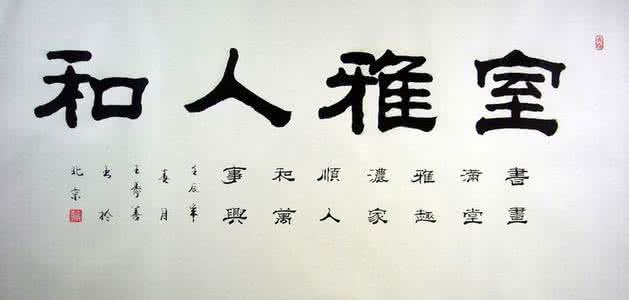 室雅人和
書畫
滿堂
雅趣
濃家
順人
和萬
事興
壬辰年
春月
王善
書於
北京